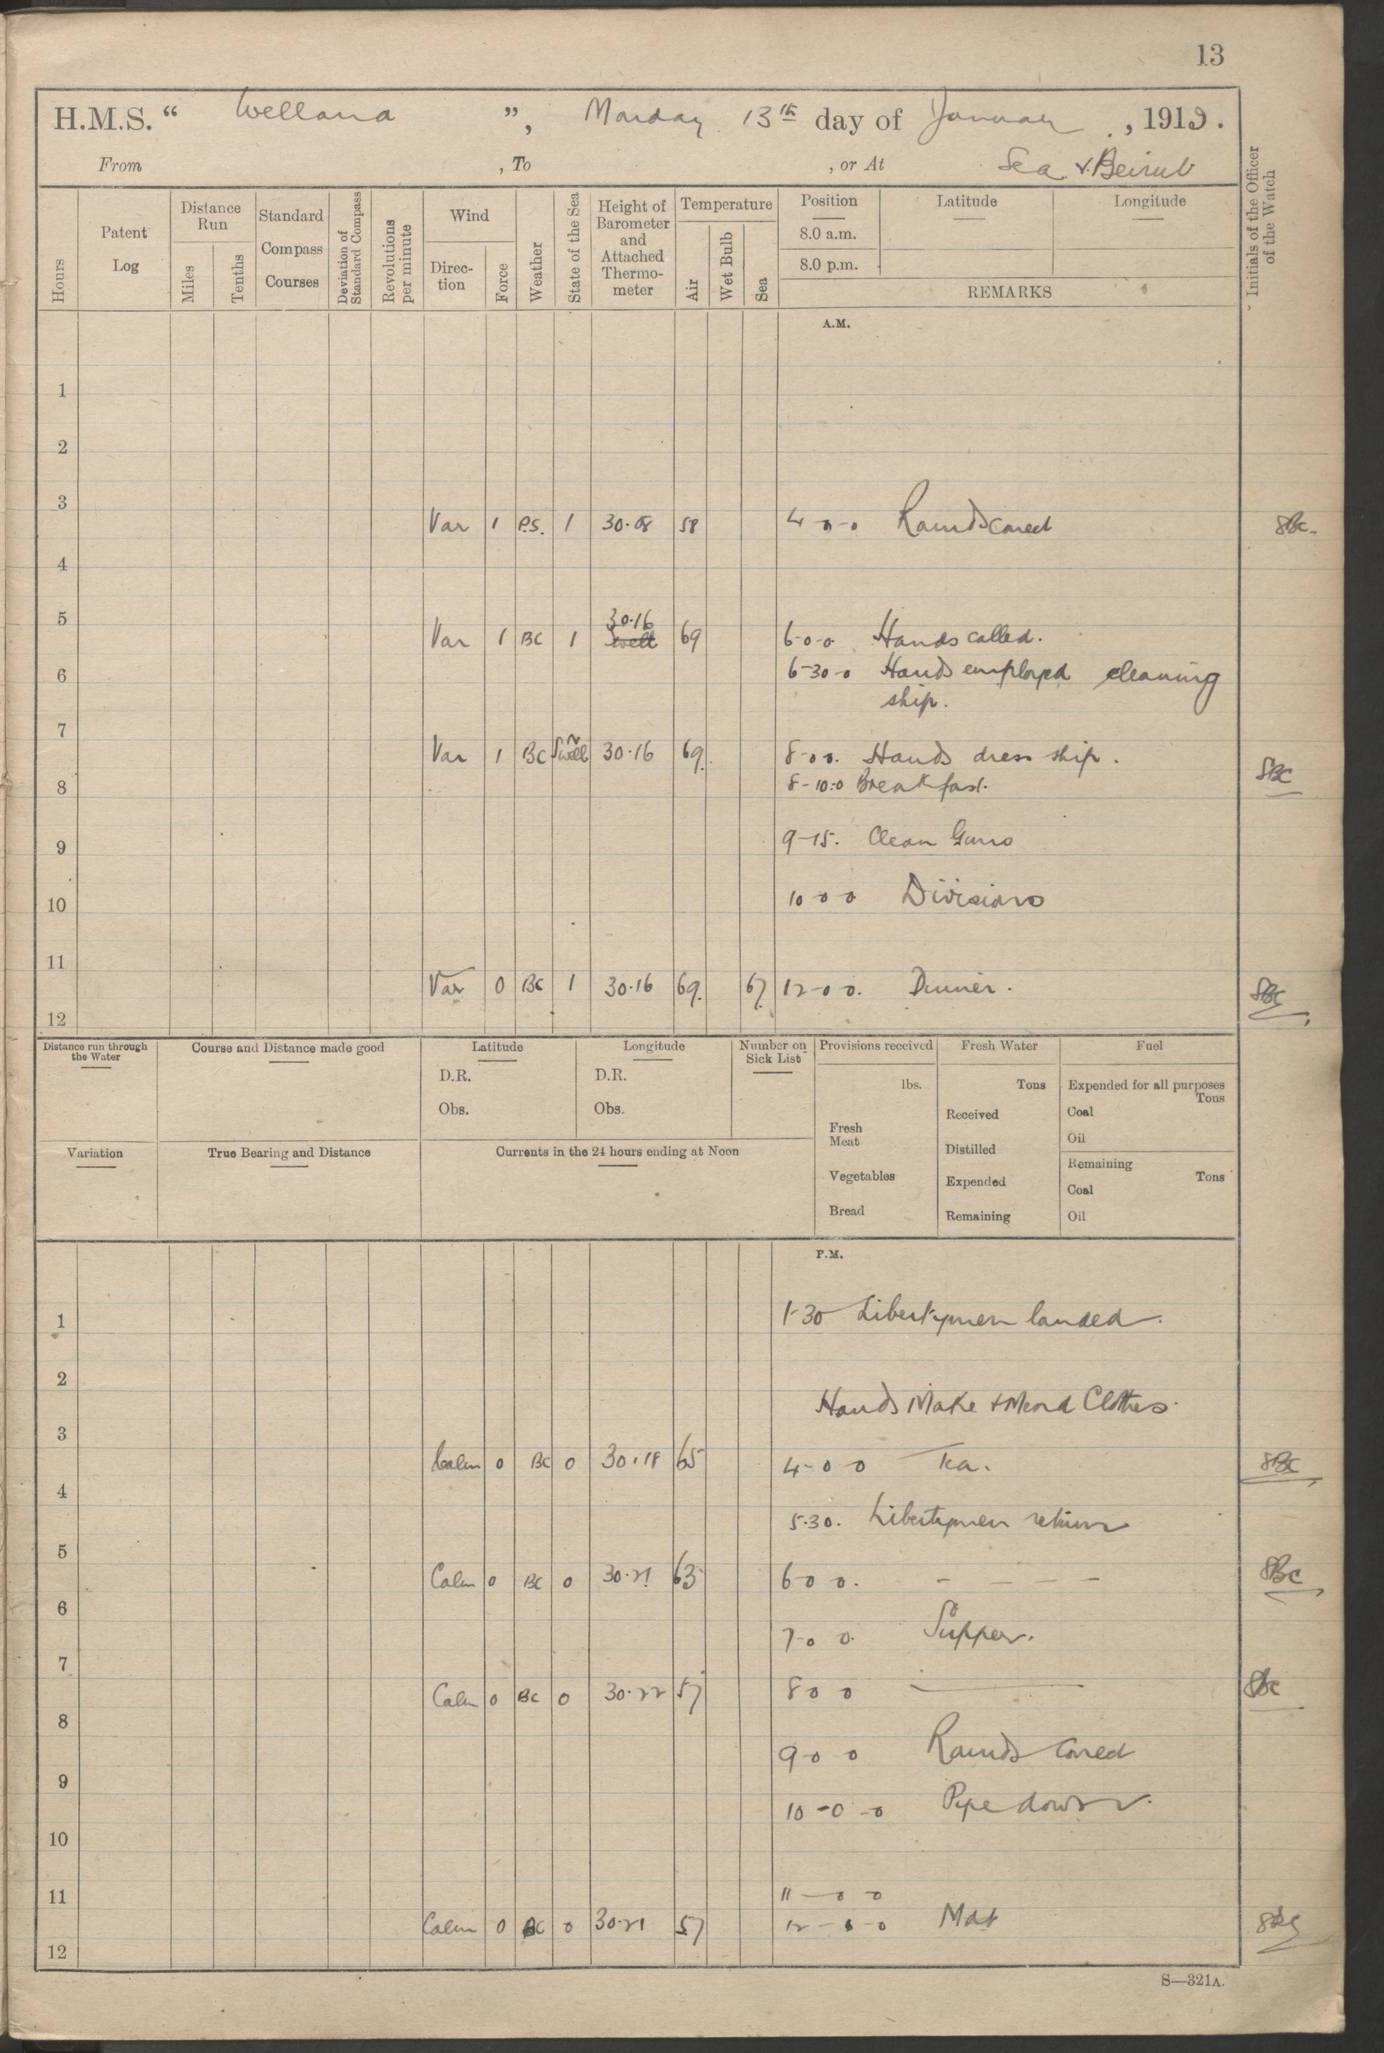 13
H.M.S. “ Wellona ”, Monday 13th day of January, 1919.
From , To , or At Sea & Beirut
Hours
Patent Log
Distance Run
Miles
Tenths
Standard Compass Courses
Deviation of Standard Compass
Revolutions per minute
Wind
Direction
Force
Weather
State of the Sea
Height of Barometer and Attached Thermometer
Temperature
Air
Wet Bulb
Sea
Position
8.0 a.m.
8.0 p.m.
Latitude
Longitude
REMARKS
Initials of the Officer of the Watch
A.M.
1
2
3
Var 1 P.S. 1 30.08 58 4-0-0 Rounds correct SBC.
4
5
30.16
Var 1 BC 1 Swell 69 6-0-0 Hands called.
6 6-30-0 Hands employed cleaning
ship.
7
Var 1 BC Swell 30.16 69. 8-0-0. Hands dress ship. SBC
8 8-10-0 Breakfast.
9 9-15. Clean Guns
10 10-0-0 Divisions
11
Var 0 BC 1 30.16 69. 67 12-0-0. Dinner. SBC
12
Distance run through the Water
Course and Distance made good
Latitude
D.R.
Obs.
Longitude
D.R.
Obs.
Number on Sick List
Provisions received
lbs.
Fresh Meat
Vegetables
Bread
Fresh Water
Tons
Received
Distilled
Expended
Remaining
Fuel
Expended for all purposes
Tons
Coal
Oil
Remaining
Tons
Coal
Oil
Variation
True Bearing and Distance
Currents in the 24 hours ending at Noon
P.M.
1 1-30 Libertymen landed.
2
Hands Make & Mend Clothes.
3
Calm 0 BC 0 30.18 65 4-0-0 Tea. SBC
4
5.30. Libertymen return
5
Calm 0 BC 0 30.21 63 6-0-0. - - - - SBC
6
7-0-0. Supper.
7
Calm 0 BC 0 30.22 57 8-0-0 — SBC
8
9-0-0 Rounds Correct
9
10-0-0 Pipe down.
10
11 11-0-0
Calm 0 BC 0 30.21 57 12-0-0 SBC
12
S—321A.